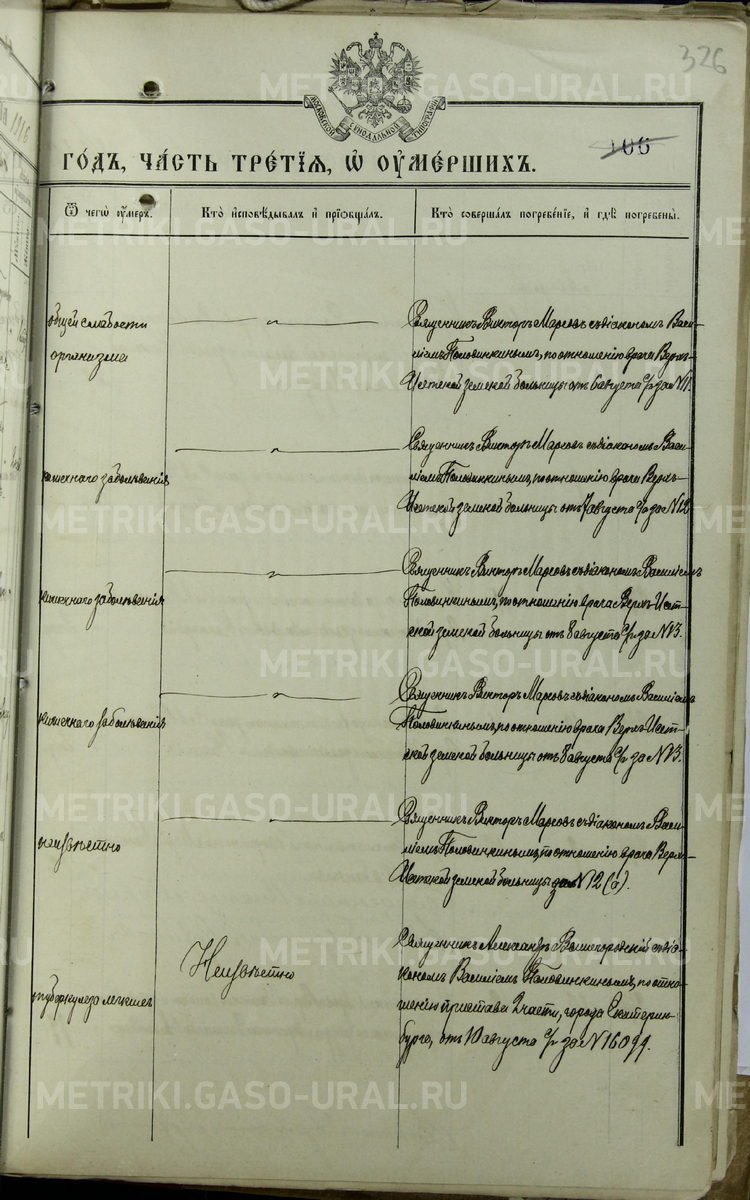 326
106
МОСКОВСКОЙ СѴНОДАЛЬНОЙ ТИПОГРАФІИ
ГО́ДЪ, ЧА́СТЬ ТРЕ́ТІЯ, Ѽ ОУ҆МЕ́РШИХЪ.
Ѿ чегѡ̀ оу҆́меръ.
Кто̀ и҆сповѣ́дывалъ и҆ прїѡбща́лъ.
Кто̀ соверша́лъ погребе́нїе, и҆ гдѣ̀ погребены̀.
общей слабости
организма
Священникъ Викторъ Марсовъ съ діакономъ Васи-
ліемъ Половинкинымъ, по отношенію врача Верхъ-
Исетской земской больницы отъ 6 августа с/г за №11.
кишечнаго заболѣванія
Священникъ Викторъ Марсовъ съ діакономъ Васи-
ліемъ Половинкинымъ, по отношенію врача Верхъ-
Исетской земской больницы отъ 7 августа с/г за №12
кишечнаго заболѣванія
Священникъ Викторъ Марсовъ съ діакономъ Василіемъ
Половинкинымъ, по отношенію врача Верхъ-Исет-
ской земской больницы отъ 8 августа с/г за №13.
кишечнаго заболѣванія
Священникъ Викторъ Марсовъ съ діакономъ Василіемъ
Половинкинымъ, по отношенію врача Верхъ-Исет-
ской земской больницы отъ 8 августа с/г за №13.
неизвѣстно
Священникъ Викторъ Марсовъ съ діакономъ Васи-
ліемъ Половинкинымъ, по отношенію врача Верхъ-
Исетской земской больницы за №12 (а).
туберкулеза легкихъ
Неизвѣстно
Священникъ Александръ Вышегородскій съ діа-
кономъ Василіемъ Половинкинымъ, по отно-
шенію пристава 2 части, города Екатерин-
бурга, отъ 10 августа с/г за №16099.
METRIKI.GASO-URAL.RU